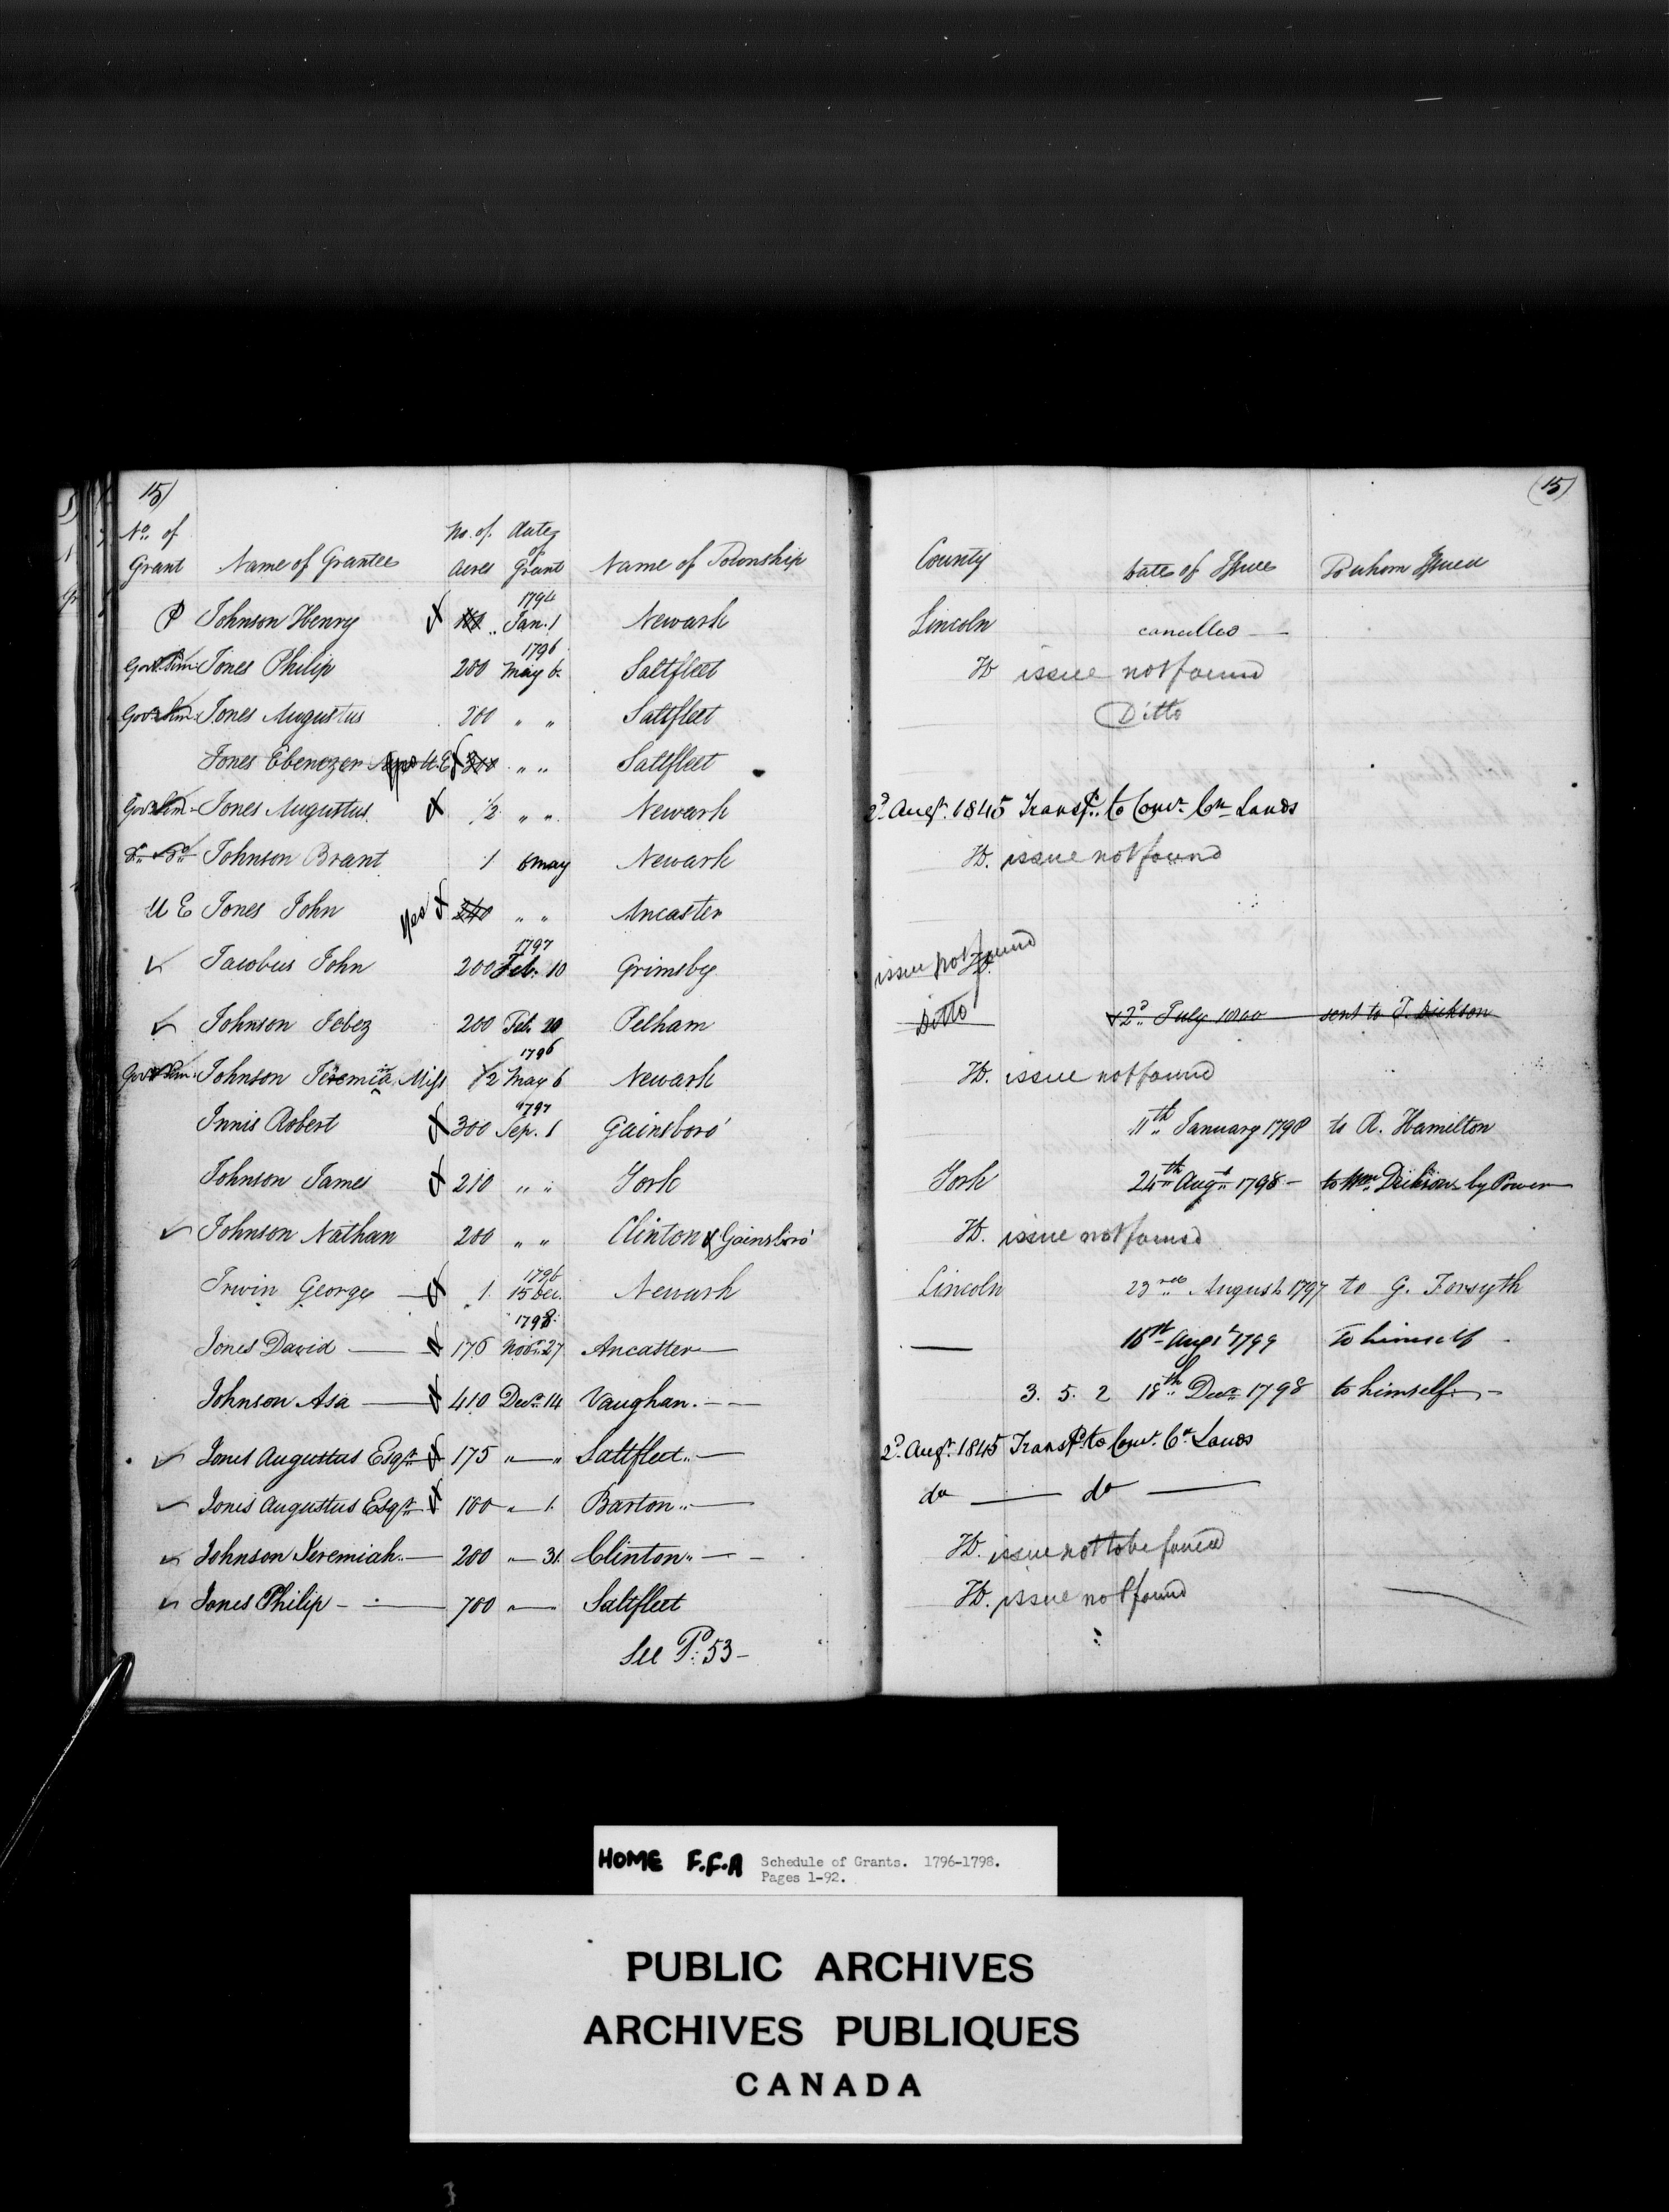 15)
(15)
No. of Grant Name of Grantee No. of Acres date of Grant Name of Township County date of Issue To whom Issued
1794
P Johnson Henry 100 " Jan. 1 Newark Lincoln cancelled —
1796
Jones Philip 200 May 6 Saltfleet issue not found
Jones Augustus 200 " " Saltfleet Ditto
Jones Ebenezer U.E 200 " " Saltfleet
Jones Augustus 1/2 " " Newark 2d. Augt. 1845 Transfd. to Comr. Cn. Lands
Do Do Johnson Brant 1 6 May Newark issue not found
U E Jones John yes 240 " " Ancaster
1797
Jacobus John 200 Feb. 10 Grimsby issue not found
Johnson Jebez 200 Feb. 20 Pelham Ditto 2d July 1800 sent to T. Dickson
1796
Johnson Jeremia Miss 1/2 May 6 Newark issue not found
1797
Innis Robert 300 Sep. 1 Gainsboro' 11th January 1798 to R. Hamilton
Johnson James 210 " " York York 24th Augt 1798 — to Wm. Dickson by Power
Johnson Nathan 200 " " Clinton & Gainsboro' issue not found
1796
Irwin George 1 15 Dec. Newark Lincoln 23rd August 1797 to G. Forsyth
1798
Jones David 176 Novr. 27 Ancaster — 16th Augt 1799 To himself
Johnson Asa 410 Decr. 14 Vaughan. 3. 5. 2 18th Decr. 1798 to himself. —
Jones Augustus Esqr. 175 " — " Saltfleet 2d. Augt. 1845 Transfd. to Comr. Cn. Lands
Jones Augustus Esqr. 100 " — 1. Barton do — do —
Johnson Jeremiah. 200 " — 31. Clinton issue not to be found
Jones Philip 700 " — Saltfleet issue not found
See P. 53 —
HOME F.F.A Schedule of Grants. 1796-1798.
Pages 1-92.
PUBLIC ARCHIVES
ARCHIVES PUBLIQUES
CANADA